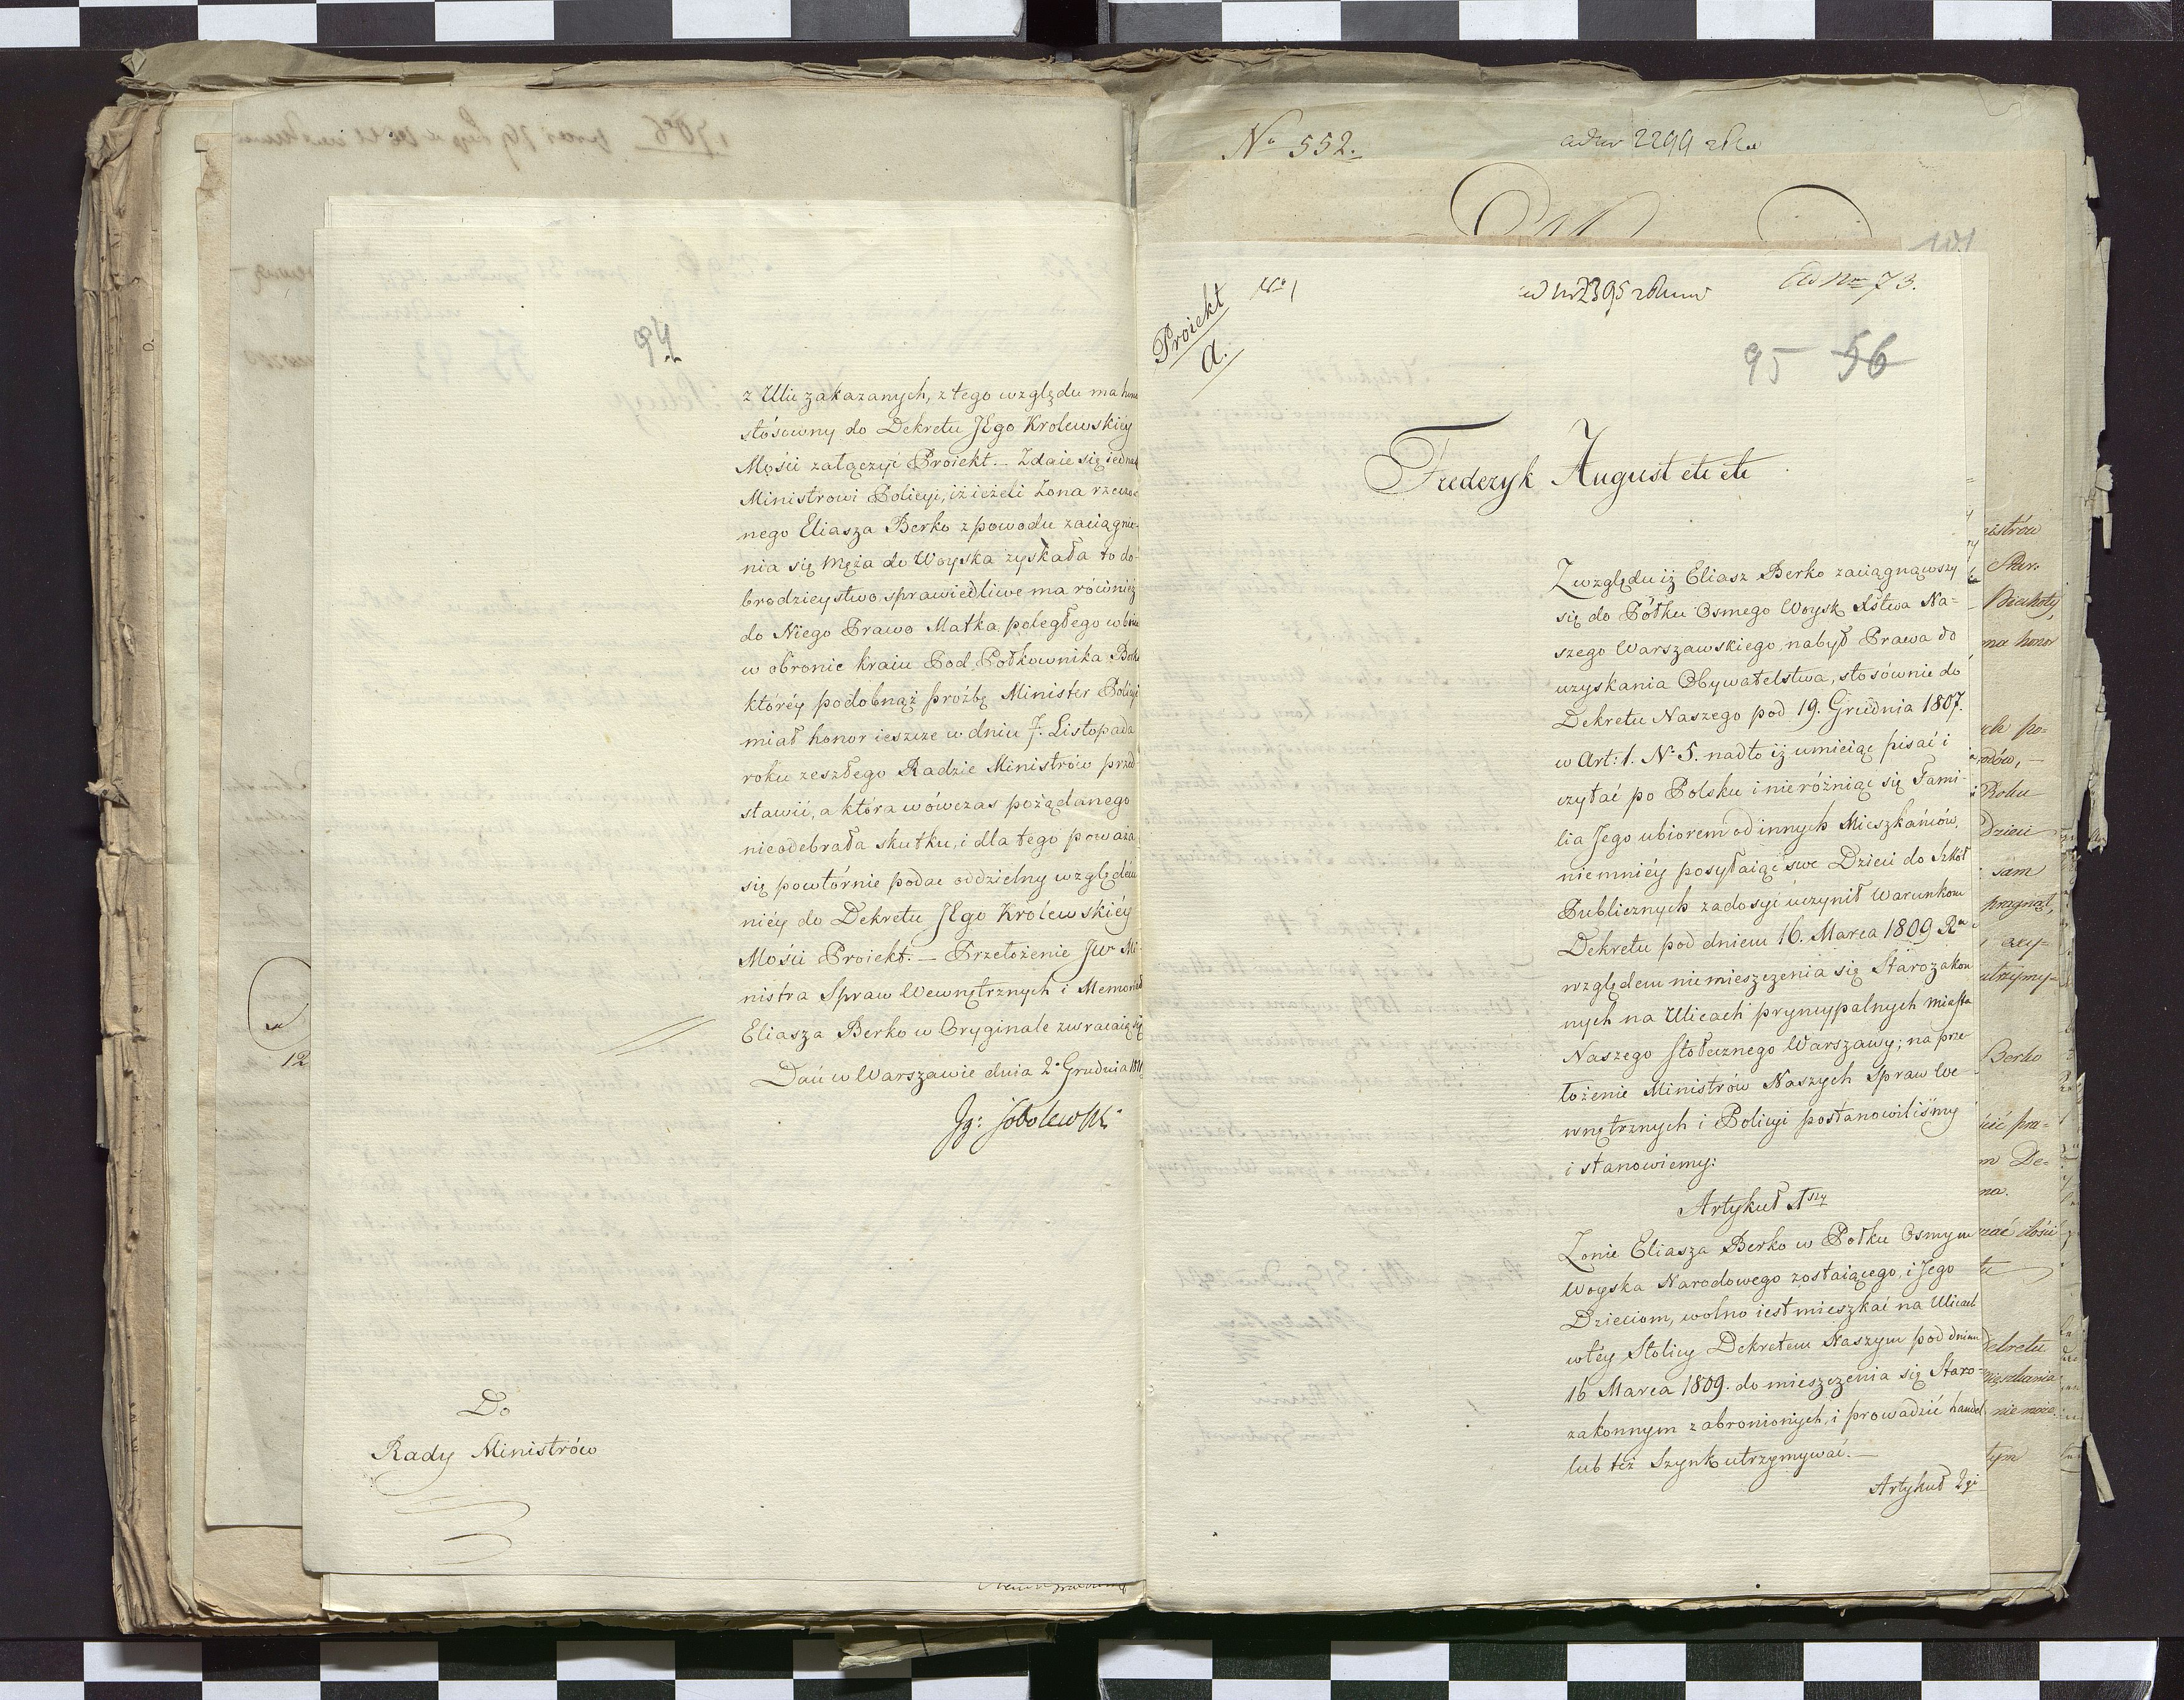 94
z Ulic zakazanych, z tego względu ma
stósowny do Dekretu JEgo Krolewskiéy
Mości załączyć Proiekt. – Zdaie się iednak
Ministrowi Policyi, iż ieżeli Żona
nego Eliasza Berko z powodu zaciągnie-
nia się Męża do Woyska zyskała to do-
brodzieystwo, sprawiedliwe ma również
do Niego Prawo Matka poległego
w obronie kraiu Pod Połkownika Berka
któréy podobnąż proźbę Minister Policyi
miał honor ieszcze w dniu 7. Listopada
roku zeszłego Radzie Ministrów przed
stawić, a która wówczas pożądanego
nieodebrała skutku, i dla tego poważa
się powtórnie podać oddzielny względem
niéy do Dekretu JEgo Krolewskiéy
Mości Proiekt. – Przełożenie JW. Mi-
nistra Spraw Wewnętrznych i Memoriał
Eliasza Berko w Oryginale zwracaią się
Dań w Warszawie dnia 2. Grudnia
Jg: Sobolewski
Do
Rady Ministrów
12
No 552.
2299
101
Proiekt
A.
No 1
2395
Ad Nrm 73.
95 56
Frederyk August etc etc
Z względu iż Eliasz Berko zaciągnąwszy
się do Półku Osmego Woysk Xstwa Na-
szego Warszawskiego, nabył Prawa do
uzyskania Obywatelstwa, stosównie do
Dekretu Naszego pod 19. Grudnia 1807.
w Art: 1. No 5. nadto iż umieiąc pisać i
czytać po Polsku i nie różniąc się Fami-
lia Jego ubiorem od innych Mieszkańców,
niemniéy posyłaiąc swe Dzieci do Szkół
Publicznych zadosyć uczynił Warunkom
Dekretu pod dniem 16. Marca 1809 Ru
względem niemieszczenia się Starozakon
nych na Ulicach pryncypalnych miasta
Naszego Stołecznego Warszawy; na prze
łożenie Ministrów Naszych Spraw We
wnętrznych i Policyi postanowiliśmy
i stanowiemy:
Artykuł 1szy
Żonie Eliasza Berko w Połku Osmym
Woyska Narodowego zostaiącego, i Jego
Dzieciom, wolno iest mieszkać na Ulicach
w téy Stolicy Dekretem Naszym pod dniem
16 Marca 1809. do mieszczenia się Staro-
zakonnym zabronionych, i prowadzić handel
lub też Szynk utrzymywać. –
Artykuł 2gi
ma honor
Roku
Dzieci
sam
pragnął,
utrzymy-
Berko
De-
na.
Dekretu
mieszkania
nie może
tym